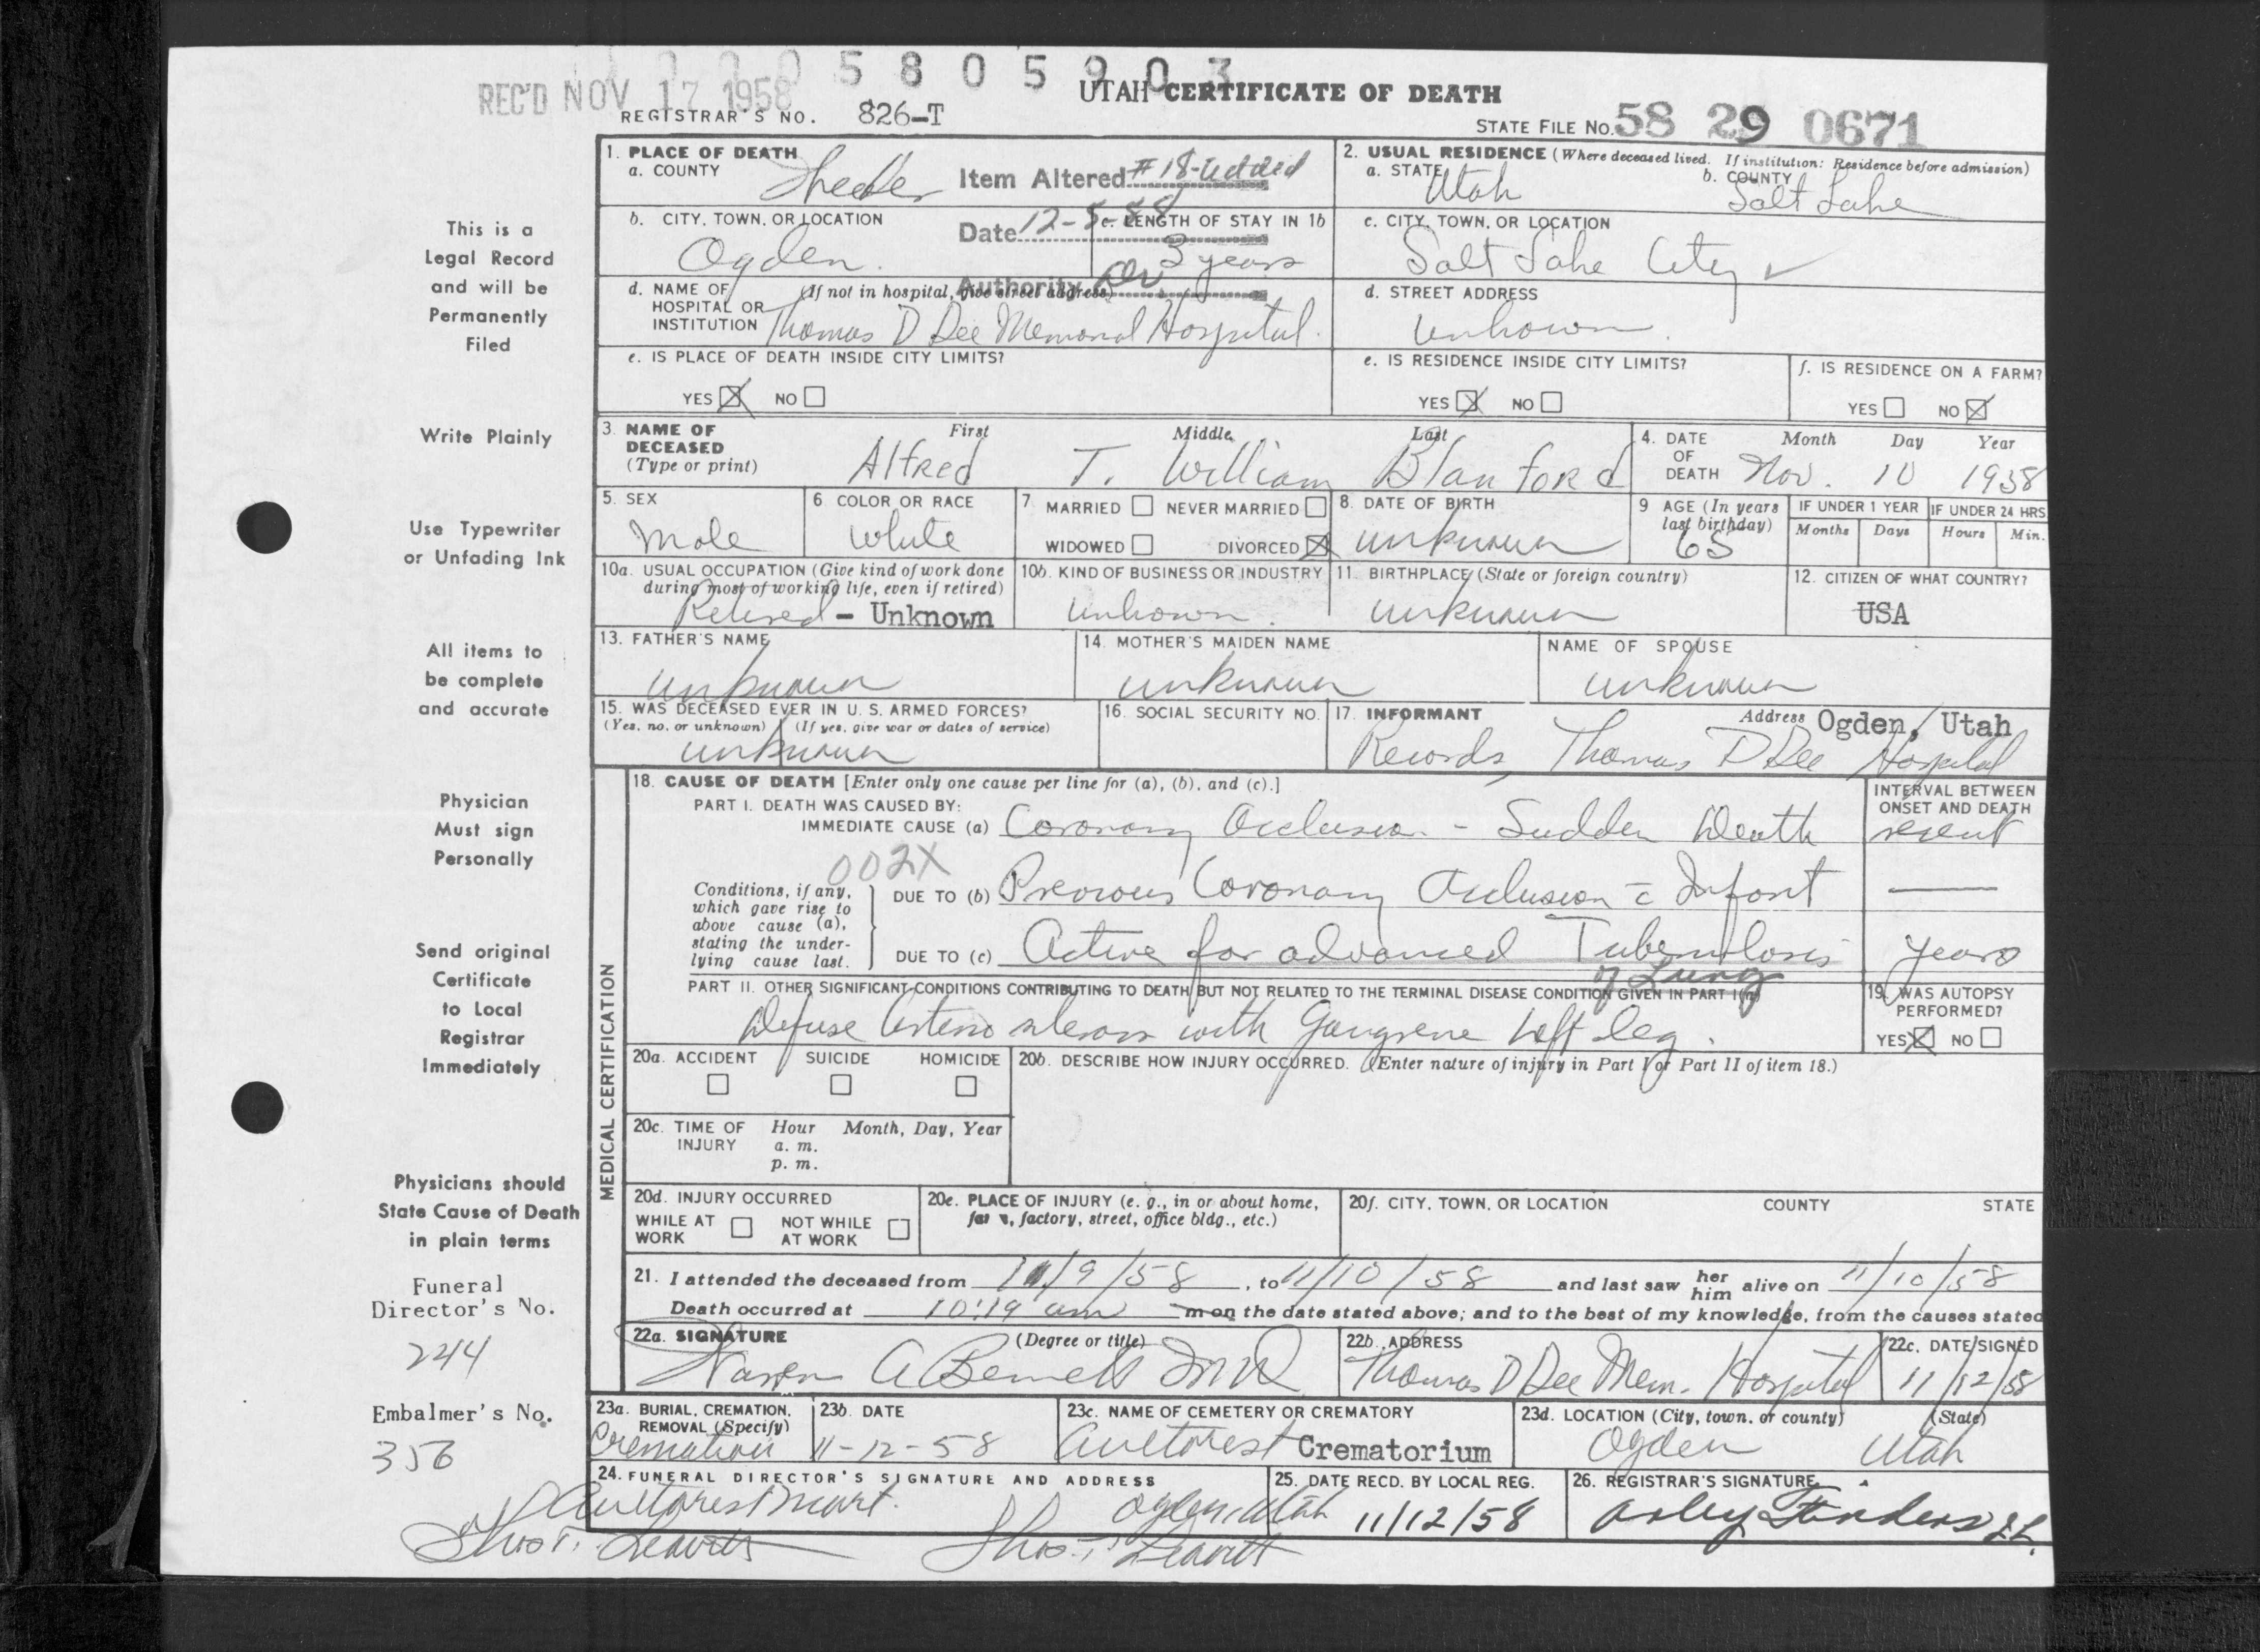 0005805903
REC'D NOV 17 1958
UTAH CERTIFICATE OF DEATH
REGISTRAR'S NO. 826-T
STATE FILE NO. 58 29 0671
1. PLACE OF DEATH
a. COUNTY
Item Altered #18-added
2. USUAL RESIDENCE (Where deceased lived. If institution: Residence before admission)
a. STATE Utah
b. COUNTY Salt Lake
b. CITY, TOWN, OR LOCATION
Ogden
Date 12-5-58
c. LENGTH OF STAY IN 1b
3 years
c. CITY, TOWN, OR LOCATION
Salt Lake City ✓
Authority
d. NAME OF HOSPITAL OR INSTITUTION
(If not in hospital, give street address)
Thomas D Dee Memorial Hospital.
d. STREET ADDRESS
Unknown.
e. IS PLACE OF DEATH INSIDE CITY LIMITS?
YES ☒ NO ☐
e. IS RESIDENCE INSIDE CITY LIMITS?
YES ☒ NO ☐
f. IS RESIDENCE ON A FARM?
YES ☐ NO ☒
3. NAME OF DECEASED
(Type or print)
First Middle Last
Alfred T. William Blanford
4. DATE OF DEATH
Month Day Year
Nov. 10 1958
5. SEX
Male
6 COLOR OR RACE
White
7. MARRIED ☐ NEVER MARRIED ☐
WIDOWED ☐ DIVORCED ☒
8. DATE OF BIRTH
unknown
9 AGE (In years last birthday)
65
IF UNDER 1 YEAR
Months Days
IF UNDER 24 HRS
Hours Min.
10a. USUAL OCCUPATION (Give kind of work done during most of working life, even if retired)
Retired - Unknown
10b. KIND OF BUSINESS OR INDUSTRY
Unknown.
11. BIRTHPLACE (State or foreign country)
unknown
12. CITIZEN OF WHAT COUNTRY?
USA
13. FATHER'S NAME
unknown
14. MOTHER'S MAIDEN NAME
unknown
NAME OF SPOUSE
unknown
15. WAS DECEASED EVER IN U. S. ARMED FORCES?
(Yes, no, or unknown) (If yes, give war or dates of service)
unknown
16. SOCIAL SECURITY NO.
17. INFORMANT Address Ogden, Utah
Records, Thomas D Dee Hospital
18. CAUSE OF DEATH [Enter only one cause per line for (a), (b), and (c).]
INTERVAL BETWEEN ONSET AND DEATH
PART I. DEATH WAS CAUSED BY:
IMMEDIATE CAUSE (a) Coronary Occlusion - Sudden Death recent
002X
Conditions, if any, which gave rise to above cause (a), stating the underlying cause last.
DUE TO (b) Previous Coronary Occlusion c̄ Infarct —
DUE TO (c) Active far advanced Tuberculosis years
of Lung
PART II. OTHER SIGNIFICANT CONDITIONS CONTRIBUTING TO DEATH BUT NOT RELATED TO THE TERMINAL DISEASE CONDITION GIVEN IN PART I(a)
Defuse Arterio sclerosis with Gangrene Left leg.
19. WAS AUTOPSY PERFORMED?
YES ☒ NO ☐
MEDICAL CERTIFICATION
20a. ACCIDENT ☐ SUICIDE ☐ HOMICIDE ☐
20b. DESCRIBE HOW INJURY OCCURRED. (Enter nature of injury in Part I or Part II of item 18.)
20c. TIME OF INJURY
Hour Month, Day, Year
a. m.
p. m.
20d. INJURY OCCURRED
WHILE AT WORK ☐ NOT WHILE AT WORK ☐
20e. PLACE OF INJURY (e. g., in or about home, farm, factory, street, office bldg., etc.)
20f. CITY, TOWN, OR LOCATION COUNTY STATE
21. I attended the deceased from 11/9/58, to 11/10/58 and last saw her him alive on 11/10/58
Death occurred at 10:19 am m on the date stated above; and to the best of my knowledge, from the causes stated
22a. SIGNATURE (Degree or title)
A MD
22b. ADDRESS
Thomas D Dee Mem. Hospital
22c. DATE SIGNED
11/12/58
23a. BURIAL, CREMATION, REMOVAL (Specify)
Cremation
23b. DATE
11-12-58
23c. NAME OF CEMETERY OR CREMATORY
Aultorest Crematorium
23d. LOCATION (City, town, or county) (State)
Ogden Utah
24. FUNERAL DIRECTOR'S SIGNATURE AND ADDRESS
Aultorest Mort. Ogden, Utah
Thos. T. Leavitt Thos. T. Leavitt
25. DATE RECD. BY LOCAL REG.
11/12/58
26. REGISTRAR'S SIGNATURE
This is a
Legal Record
and will be
Permanently
Filed
Write Plainly
Use Typewriter
or Unfading Ink
All items to
be complete
and accurate
Physician
Must sign
Personally
Send original
Certificate
to Local
Registrar
Immediately
Physicians should
State Cause of Death
in plain terms
Funeral
Director's No.
244
Embalmer's No.
356